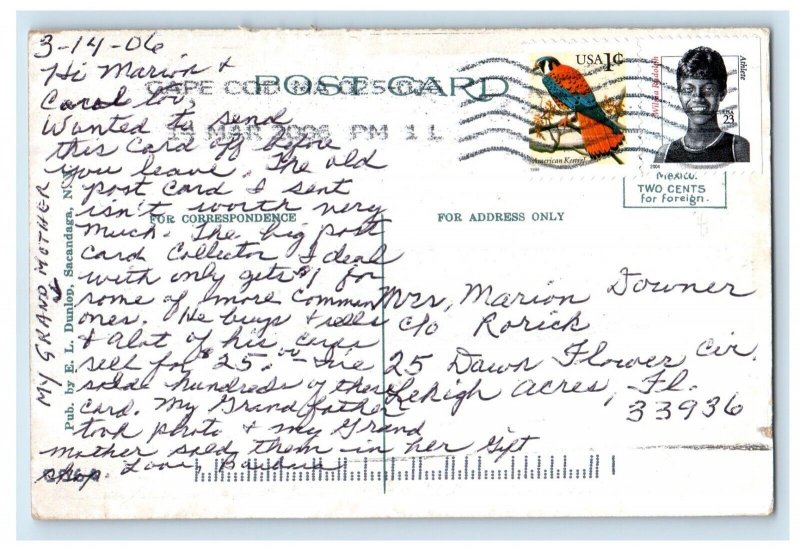 3-14-06
Hi Marion &
Carol too,
Wanted to send
this card off before
you leave. The old
post card I sent
isn't worth very
much. The big post
card collector I deal
with only gets $1 for
some of more common
ones. He buys & sells
& alot of his cards
sell for $25.00 – I've
sold hundreds of these
card. My Grandfather
took photo & my Grand
mother sold them in her Gift
shop. Love, Barbara
MY GRAND MOTHER
Pub. by E. L. Dunlop, Sacandaga, N.
POST CARD
CAPE COD MA 025
MAR 2006 PM 1 L
FOR CORRESPONDENCE
FOR ADDRESS ONLY
USA 1¢
American Kestrel
1999
Wilma Rudolph
Athlete
USA
23
2004
Mexico.
TWO CENTS
for Foreign.
Mrs, Marion Downer
c/o Rorick
25 Dawn Flower Cir.
Lehigh Acres, Fl.
33936